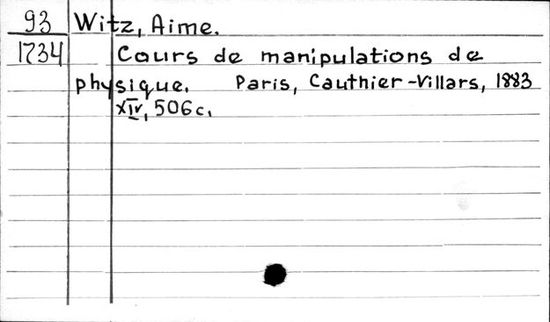 93 Witz, Aime.
1734 Cours de manipulations de
physique. Paris, Cauthier-Villars, 1883
XIV, 506 c.